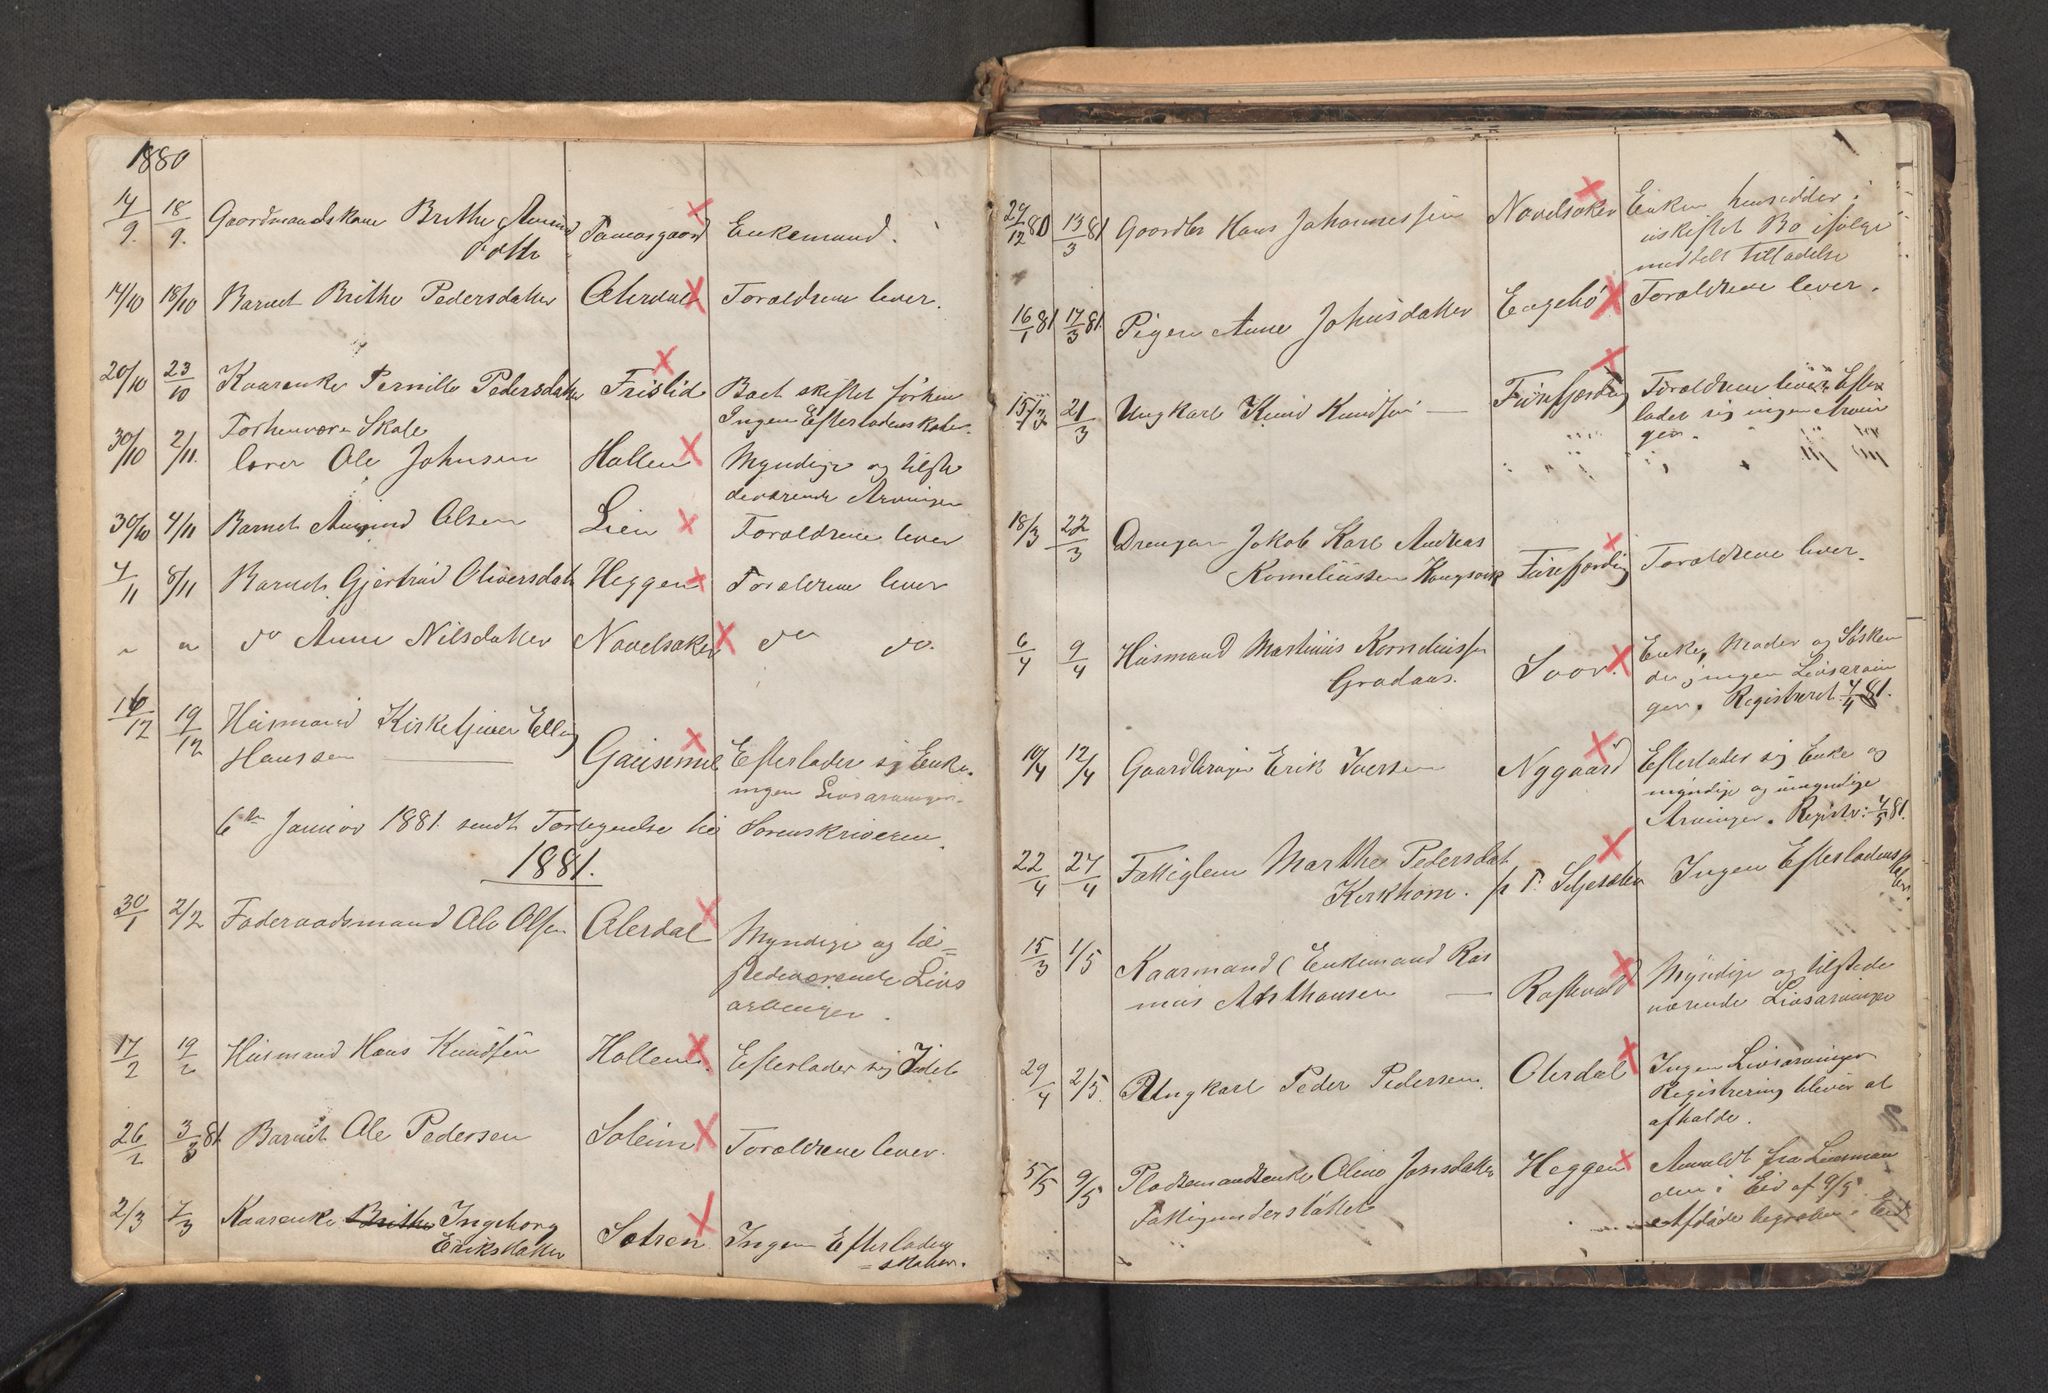 1880
14/9 18/9 Gaardmandskone Brithe Amund Tomasgaard Enkemand.
14/10 18/10 Barnet Brithe Pedersdatter Alerdal Forældrene lever.
20/10 23/10 Kaarenke Pernille Pedersdatter Frislid Boet skiftet
Ingen Efterladenskaber
30/10 2/11 Forhenværen Skole
lærer Ole Johnsen Hallen Myndige og tilste
deværende Arvinger
30/10 4/11 Barnet Amund Olsen Lien Forældrene lever
4/11 8/11 Barnet Gjertrud Oliversdat Heggen Forældrene lever
" " do Anne Nilsdatter Navelsaker do do.
16/12 19/12 Husmand Kirketjener Elling
Hanssen Gausemel Efterlader sig Enke.
ingen Livsarvinger.
6te Januar 1881. sendt Fortegnelse til Sorenskriveren.
1881.
30/1 2/2 Føderaadsmand Ole Olsen Alerdal Myndige og til=
stedeværende Livs
arvinger.
17/2 19/2 Husmand Hans Knudsen Hollen Efterlader sig Intet
26/2 3/3 81. Barnet Ole Pedersen Soleim Forældrene lever.
2/3 7/3 Kaarenke Brithe Ingeborg
Eriksdatter Sætren Ingen Efterladen
=skaber.
1
27/12 80 13/3 81 Gaardbr Hans Johannessen Navelsaker Enken hensidder i
uskiftet Bo ifølge
meddelt Tilladelse
16/1 81 17/3 81. Pigen Anne Johnsdatter Engebø Forældrene lever.
15/3 21/3 Ungkarl Knud Knudsen Furefjærding Forældrene lever Efter
lader sig ingen Arvin
ger.
18/3 22/3 Drengen Jakob Karl Andreas
Korneliussen Kongsvik Furefjærding Forældrene lever.
6/4 9/4 Husmand Martinus Korneliussen
Grodaas. Svor. Enke, Moder og Søsken
de, ingen Livsarvin
ger. Registreret 4/4 81.
10/4 12/4 Gaardbruger Erik Iversen Nygaard Efterlader sig Enke og
myndige og umyndige
Arvinger. Registr: 4/5 81.
22/4 27/4 Fattiglem Marthe Pedersdat
Kirkhorn. p T. Seljesæter Ingen Efterladensk
aber.
15/3 1/5 Kaarmand (Enkemand Ras
mus Arsthausen Raftevold Myndige og tilstede
værende Livsarvinger
29/4 2/5. Ungkarl Peder Pedersen. Alerdal Ingen Livsarvinger
Registrering bliver at
afholde.
5/5 9/5 Pladsemandsenke Oline Jonsdatter Heggen Anmeldt fra Lensman
den i Eid af 9/5
Fattigunderstøttet Afdøde begraven i Eid